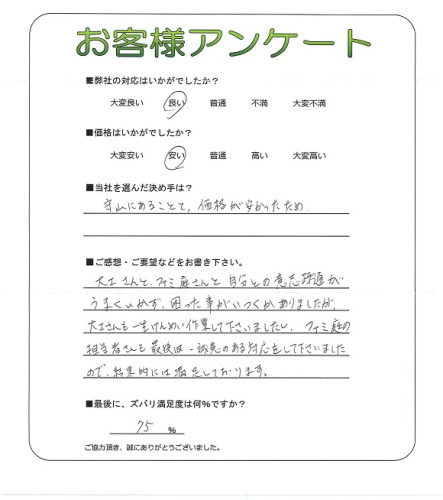 お客様アンケート
■弊社の対応はいかがでしたか？
大変良い 良い 普通 不満 大変不満
■価格はいかがでしたか？
大変安い 安い 普通 高い 大変高い
■当社を選んだ決め手は？
守山にあることと、価格が安かったため.
■ご感想・ご要望などをお書き下さい。
大工さんと、ファミ庭さんと自分との意志疎通が
うまくいかず、困った事がいくつかありましたが、
大工さんも一生けんめい作業して下さいましたし、ファミ庭の
担当者さんも最後は誠意のある対応をして下さいました
ので、結果的には満足しております。
■最後に、ズバリ満足度は何%ですか？
75 %
ご協力頂き、誠にありがとうございました。